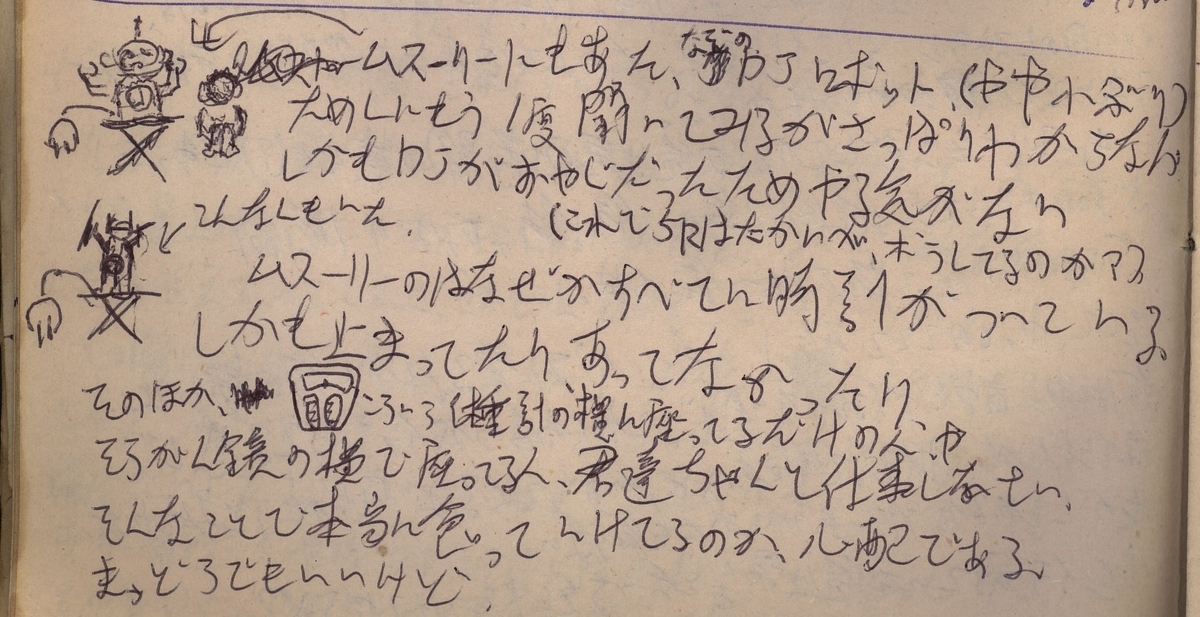 ムスーリーにもあった、なぞの DJ ロボット、(やや小ぶり)
ためしにもう1度聞いてみるがさっぱりわからなん
しかもDJがおやじだったためやる気がない
こんなんもいた。
ムスーリーのはなぜかすべてに時計がついている
しかも止まってたり、あってなかったり
そのほか、体重計の横に座ってるだけの人や
そうがん鏡の横で座ってる人、君達ちゃんと仕事しなさい、
そんなことで本当に食っていけてるのか、心配である、
まっどうでもいいけど、